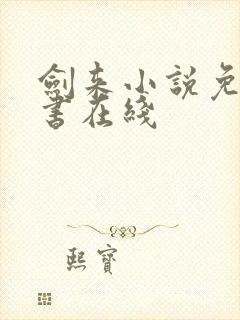 劍来小說免
書在綫
熙寶